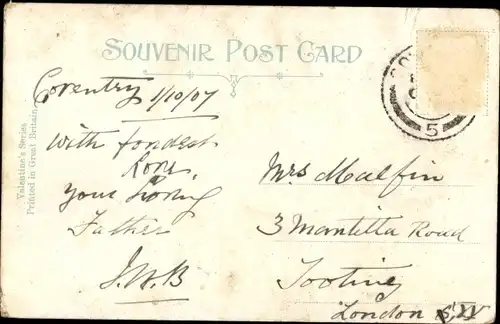 SOUVENIR POST CARD
Coventry 1/10/07
With fondest
Love,
Your Loving
Father
J.W.B
Mrs Malfin
3 Mantilla Road
Tooting
London S,W
Valentine's Series
Printed in Great Britain.
5